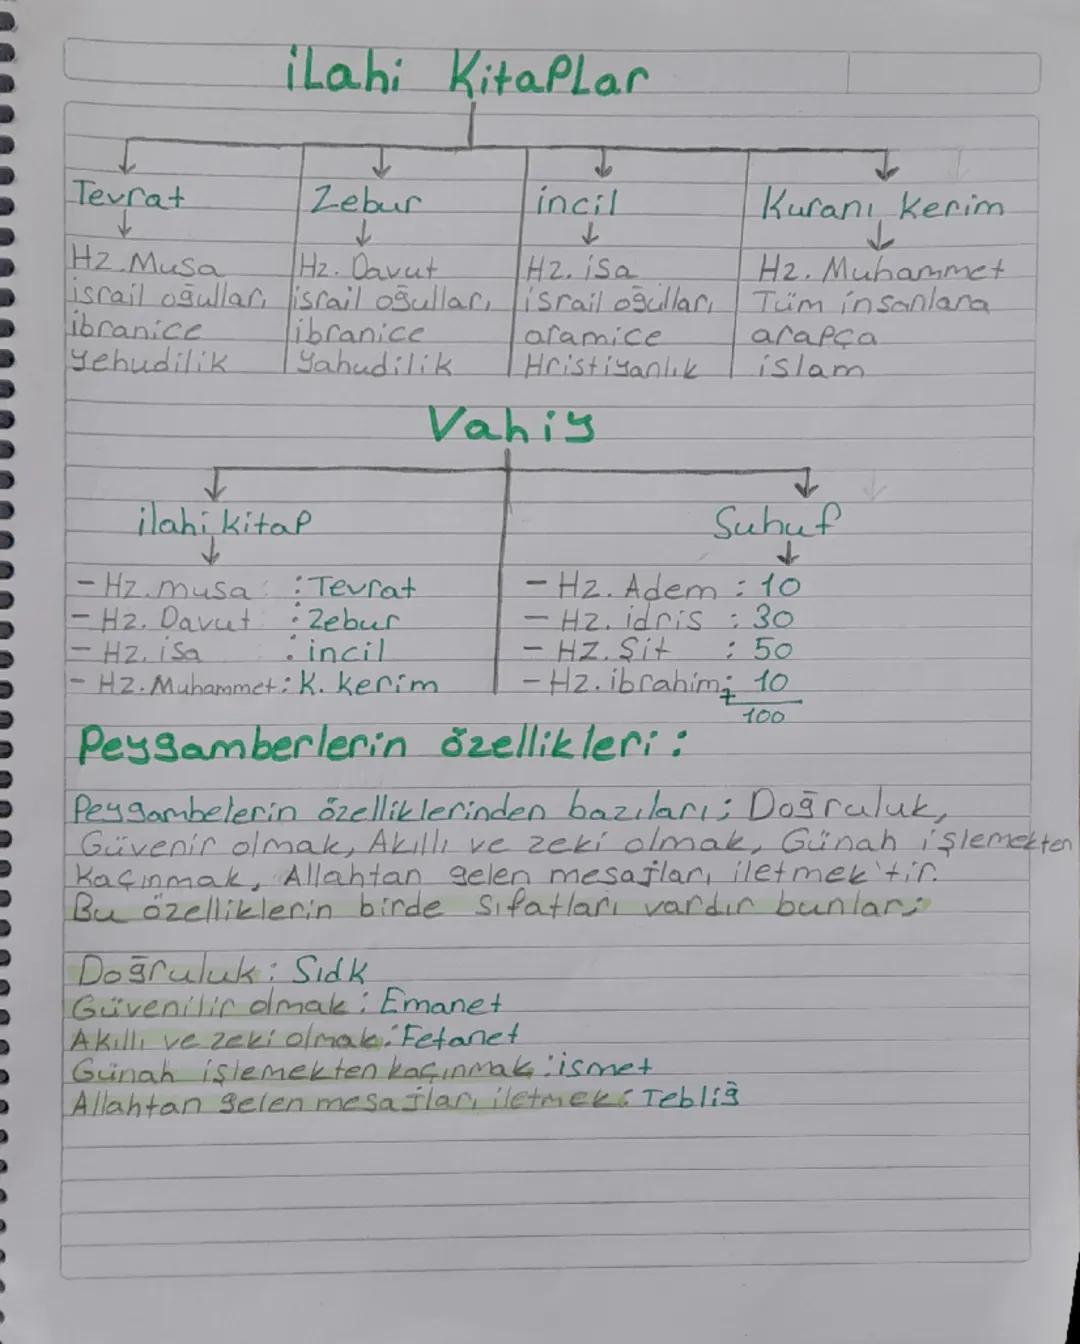 iLahi KitaPLar
Tevrat Zebur incil Kuranı kerim
Hz. Musa Hz. Davut Hz. isa Hz. Muhammet
israil oğulları israil oğulları israil oğulları Tüm insanlara
ibranice ibranice aramice arapça
Yehudilik Yahudilik Hristiyanlık islam
Vahiy
ilahi kitap Suhuf
- Hz. musa : Tevrat - Hz. Adem : 10
- Hz. Davut : Zebur - Hz. idris : 30
- Hz. isa : incil - Hz. Şit : 50
- Hz. Muhammet : K. kerim - Hz. ibrahim : 10
+
100
Peygamberlerin özellikleri :
Peygambelerin özelliklerinden bazıları; Doğruluk,
Güvenir olmak, Akıllı ve zeki olmak, Günah işlemekten
Kaçınmak, Allahtan gelen mesajları iletmek'tir.
Bu özelliklerin birde sıfatları vardır bunlar;
Doğruluk : Sıdk
Güvenilir olmak : Emanet
Akıllı ve zeki olmak : Fetanet
Günah işlemekten kaçınmak : ismet
Allahtan gelen mesajları iletmek : Tebliğ